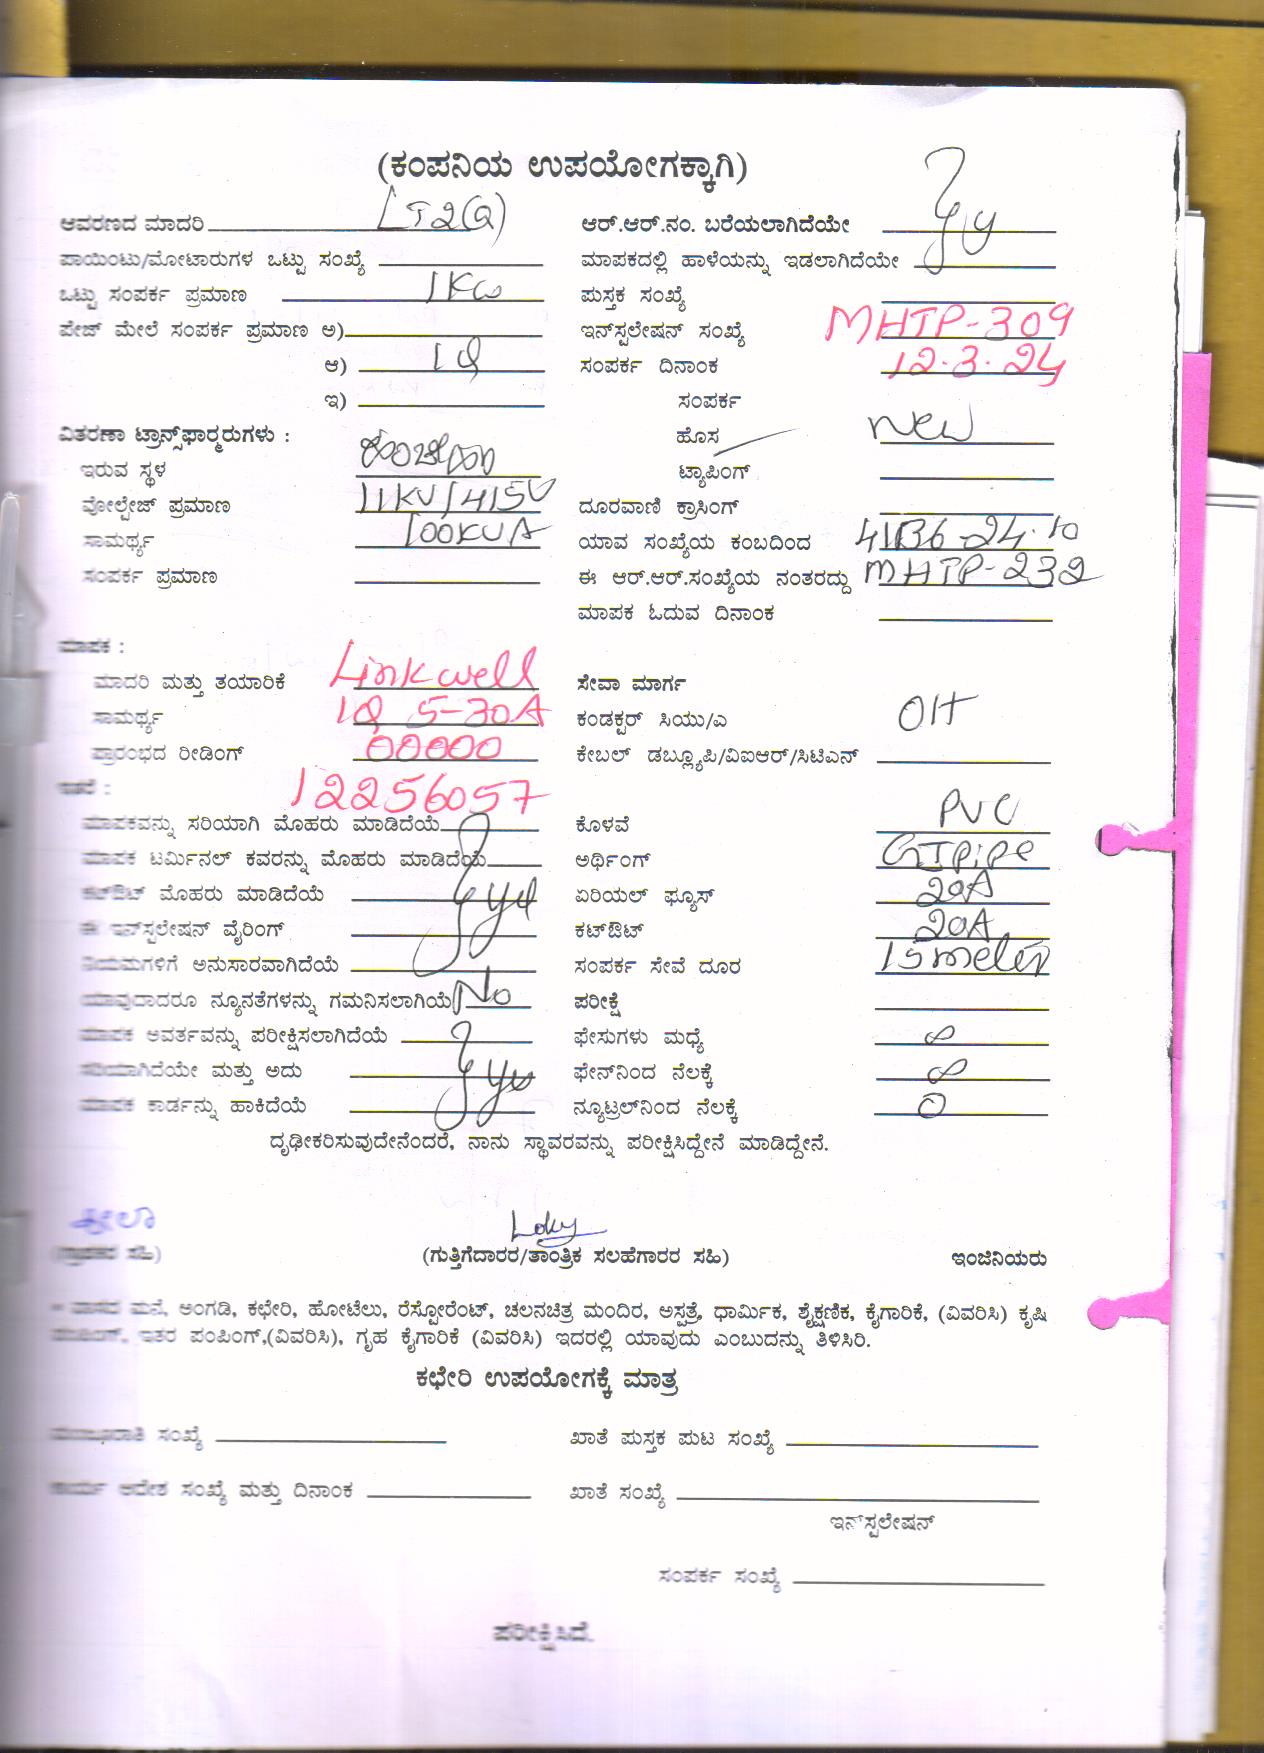 (ಕಂಪನಿಯ ಉಪಯೋಗಕ್ಕಾಗಿ)
ಆವರಣದ ಮಾದರಿ LT2(a) ಆರ್.ಆರ್.ನಂ. ಬರೆಯಲಾಗಿದೆಯೇ
ಪಾಯಿಂಟು/ಮೋಟಾರುಗಳ ಒಟ್ಟು ಸಂಖ್ಯೆ ಮಾಪಕದಲ್ಲಿ ಹಾಳೆಯನ್ನು ಇಡಲಾಗಿದೆಯೇ
ಒಟ್ಟು ಸಂಪರ್ಕ ಪ್ರಮಾಣ 1Kw ಪುಸ್ತಕ ಸಂಖ್ಯೆ
ಪೇಜ್ ಮೇಲೆ ಸಂಪರ್ಕ ಪ್ರಮಾಣ ಅ) ಇನ್‌ಸ್ಟಲೇಷನ್ ಸಂಖ್ಯೆ MHTP-309
ಆ) 1Q ಸಂಪರ್ಕ ದಿನಾಂಕ 12.3.24
ಇ) ಸಂಪರ್ಕ
ವಿತರಣಾ ಟ್ರಾನ್ಸ್‌ಫಾರ್ಮರುಗಳು : ಹೊಸ new
ಇರುವ ಸ್ಥಳ ಟ್ಯಾಪಿಂಗ್
ವೋಲ್ಟೇಜ್ ಪ್ರಮಾಣ 11KV/415V ದೂರವಾಣಿ ಕ್ರಾಸಿಂಗ್
ಸಾಮರ್ಥ್ಯ 100KVA ಯಾವ ಸಂಖ್ಯೆಯ ಕಂಬದಿಂದ
ಸಂಪರ್ಕ ಪ್ರಮಾಣ ಈ ಆರ್.ಆರ್.ಸಂಖ್ಯೆಯ ನಂತರದ್ದು MHTP-232
ಮಾಪಕ ಓದುವ ದಿನಾಂಕ
ಮಾಪಕ :
ಮಾದರಿ ಮತ್ತು ತಯಾರಿಕೆ Linkwell ಸೇವಾ ಮಾರ್ಗ
ಸಾಮರ್ಥ್ಯ 1Q 5-30A ಕಂಡಕ್ಟರ್ ಸಿಯು/ಎ OH
ಪ್ರಾರಂಭದ ರೀಡಿಂಗ್ 00000 ಕೇಬಲ್ ಡಬ್ಲ್ಯೂಪಿ/ವಿಐಆರ್/ಸಿಟಿಎನ್
ಇತರೆ : 12256057
ಮಾಪಕವನ್ನು ಸರಿಯಾಗಿ ಮೊಹರು ಮಾಡಿದೆಯೆ ಕೊಳವೆ PVC
ಮಾಪಕ ಟರ್ಮಿನಲ್ ಕವರನ್ನು ಮೊಹರು ಮಾಡಿದೆಯೆ ಅರ್ಥಿಂಗ್ GIPipe
ಕಟ್‌ಔಟ್ ಮೊಹರು ಮಾಡಿದೆಯೆ ಏರಿಯಲ್ ಫ್ಯೂಸ್ 20A
ಈ ಇನ್‌ಸ್ಟಲೇಷನ್ ವೈರಿಂಗ್ ಕಟ್‌ಔಟ್ 20A
ನಿಯಮಗಳಿಗೆ ಅನುಸಾರವಾಗಿದೆಯೆ ಸಂಪರ್ಕ ಸೇವೆ ದೂರ 15 meter
ಯಾವುದಾದರೂ ನ್ಯೂನತೆಗಳನ್ನು ಗಮನಿಸಲಾಗಿಯೆ No ಪರೀಕ್ಷಿ
ಮಾಪಕ ಅವರ್ತವನ್ನು ಪರೀಕ್ಷಿಸಲಾಗಿದೆಯೆ ಫೇಸುಗಳು ಮಧ್ಯೆ ∞
ಸರಿಯಾಗಿದೆಯೇ ಮತ್ತು ಅದು yes ಫೇಸ್‌ನಿಂದ ನೆಲಕ್ಕೆ ∞
ಮಾಪಕ ಕಾರ್ಡನ್ನು ಹಾಕಿದೆಯೆ ನ್ಯೂಟ್ರಲ್‌ನಿಂದ ನೆಲಕ್ಕೆ 0
ದೃಢೀಕರಿಸುವುದೇನೆಂದರೆ, ನಾನು ಸ್ಥಾವರವನ್ನು ಪರೀಕ್ಷಿಸಿದ್ದೇನೆ ಮಾಡಿದ್ದೇನೆ.
ಶೀಲಾ Loky
(ಗ್ರಾಹಕರ ಸಹಿ) (ಗುತ್ತಿಗೆದಾರರ/ತಾಂತ್ರಿಕ ಸಲಹೆಗಾರರ ಸಹಿ) ಇಂಜಿನಿಯರು
* ವಾಸದ ಮನೆ, ಅಂಗಡಿ, ಕಛೇರಿ, ಹೋಟೆಲು, ರೆಸ್ಟೋರೆಂಟ್, ಚಲನಚಿತ್ರ ಮಂದಿರ, ಅಸ್ಪತ್ರೆ, ಧಾರ್ಮಿಕ, ಶೈಕ್ಷಣಿಕ, ಕೈಗಾರಿಕೆ, (ವಿವರಿಸಿ) ಕೃಷಿ
ಪಂಪಿಂಗ್, ಇತರ ಪಂಪಿಂಗ್,(ವಿವರಿಸಿ), ಗೃಹ ಕೈಗಾರಿಕೆ (ವಿವರಿಸಿ) ಇದರಲ್ಲಿ ಯಾವುದು ಎಂಬುದನ್ನು ತಿಳಿಸಿರಿ.
ಕಛೇರಿ ಉಪಯೋಗಕ್ಕೆ ಮಾತ್ರ
ಮಂಜೂರಾತಿ ಸಂಖ್ಯೆ ಖಾತೆ ಪುಸ್ತಕ ಪುಟ ಸಂಖ್ಯೆ
ಕಾರ್ಯ ಆದೇಶ ಸಂಖ್ಯೆ ಮತ್ತು ದಿನಾಂಕ ಖಾತೆ ಸಂಖ್ಯೆ
ಇನ್‌ಸ್ಟಲೇಷನ್
ಸಂಪರ್ಕ ಸಂಖ್ಯೆ
ಪರೀಕ್ಷಿಸಿದೆ.